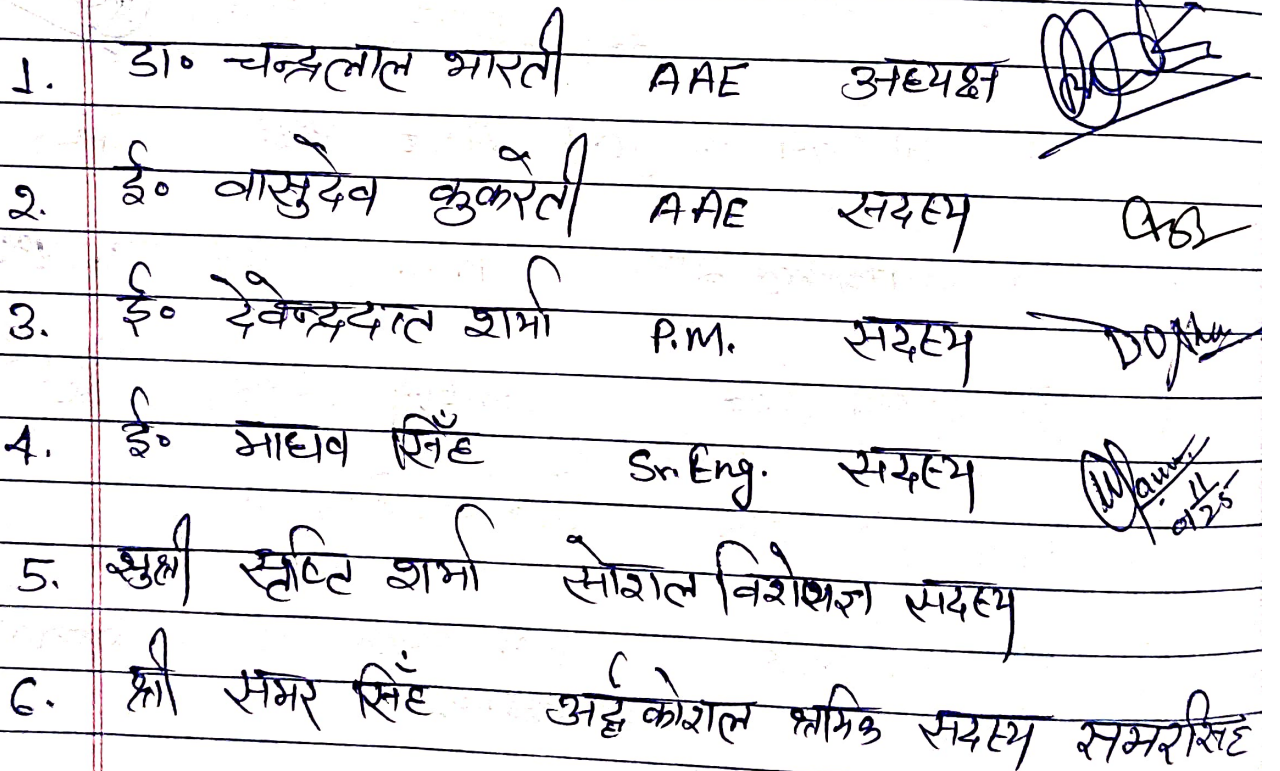 1. डा० चन्द्रलाल भारती AAE अध्यक्ष
2. ई० वासुदेव कुकरेती AAE सदस्य
3. ई० देवेन्द्रदत्त शर्मा P.M. सदस्य
4. ई० माधव सिँह Sr. Eng. सदस्य
5. सुश्री सृष्टि शर्मा सोशल विशेषज्ञ सदस्य
6. श्री समर सिँह अर्द्ध कोशल श्रमिक सदस्य समरसिंह